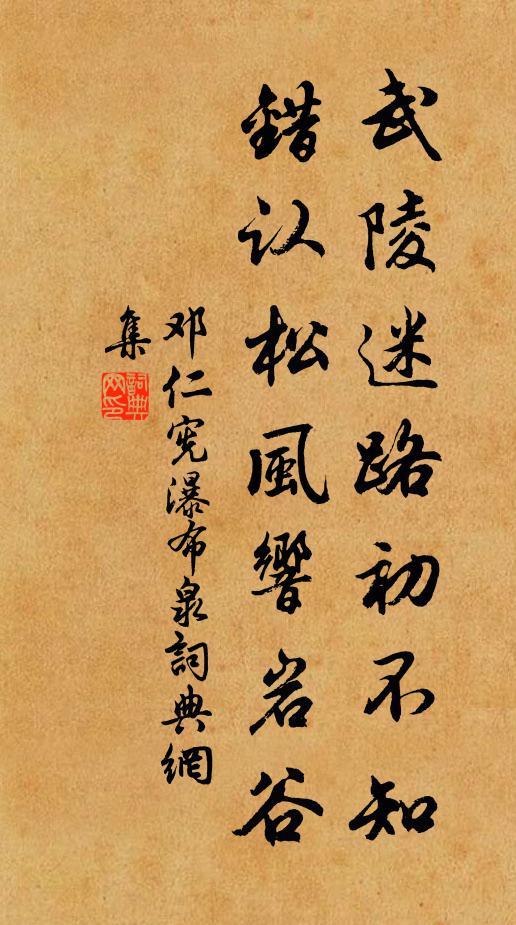 武陵迷路初不知
錯认松風響岩谷
邓仁宪瀑布泉詞典網
集
詞典
网印